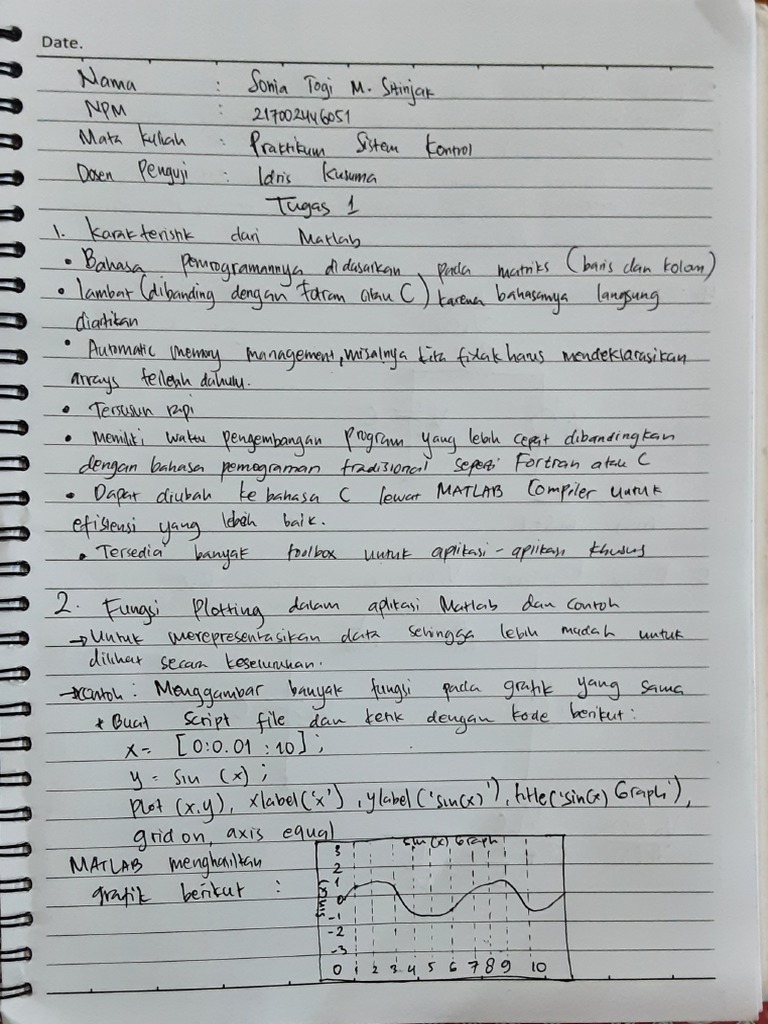 Date.
Nama : Sonia Togi M. Sitinjak
NPM : 217002446051
Mata kuliah : Praktikum Sistem Kontrol
Dosen Penguji : Idris Kusuma
Tugas 1
1. Karakteristik dari Matlab
• Bahasa pemrogramannya didasarkan pada matriks (baris dan kolom)
• lambat (dibanding dengan Fotran atau C) karena bahasanya langsung
diartikan
• Automatic memory management, misalnya kita tidak harus mendeklarasikan
arrays terlebih dahulu.
• Tersusun rapi
• Memiliki waktu pengembangan program yang lebih cepat dibandingkan
dengan bahasa pemograman tradisional seperti Fortran atau C
• Dapat diubah ke bahasa C lewat MATLAB Compiler untuk
efisiensi yang lebih baik.
• Tersedia banyak toolbox untuk aplikasi-aplikasi khusus
2. Fungsi Plotting dalam aplikasi Matlab dan contoh
→ Untuk merepresentasikan data sehingga lebih mudah untuk
dilihat secara keseluruhan.
→ contoh : Menggambar banyak fungsi pada grafik yang sama
* Buat Script file dan ketik dengan kode berikut :
x = [0:0.01:10];
y = sin (x);
plot (x,y), xlabel('x'), ylabel('sin(x)'), title('sin(x) Graph'),
grid on, axis equal
MATLAB menghasilkan
grafik berikut :
sin(x) Graph
sin(x)
3
2
1
0
-1
-2
-3
0 1 2 3 4 5 6 7 8 9 10